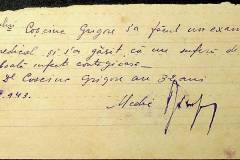 Coscinc Grigore s'a făcut un exam
medical, și s'a găsit că nu suferă de
boală infect contagioase
Dl Coscinc Grigore are 32 ani
943.
Medic